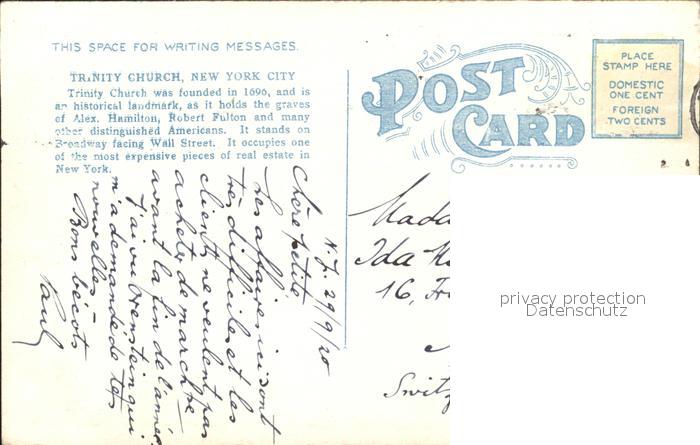 THIS SPACE FOR WRITING MESSAGES.
TRINITY CHURCH, NEW YORK CITY
Trinity Church was founded in 1696, and is
an historical landmark, as it holds the graves
of Alex. Hamilton, Robert Fulton and many
other distinguished Americans. It stands on
Broadway facing Wall Street. It occupies one
of the most expensive pieces of real estate in
New York.
POST
CARD
PLACE
STAMP HERE
DOMESTIC
ONE CENT
FOREIGN
TWO CENTS
N. Y. 29/9/20
Chère petite,
Les affaires ici sont
très difficiles et les
clients ne veulent pas
acheter de march/se
avant la fin de l'année
J'ai vu Orenstein qui
m'a demandé de tes
nouvelles –
Bons bécots
Paul
Mada
Ida
16, Fr
Switz
privacy protection
Datenschutz